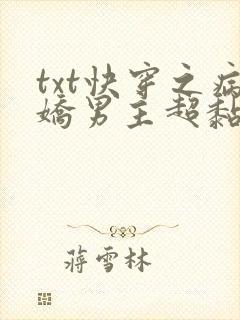 txt快穿之病
嬌男主超黏
蔣雪林